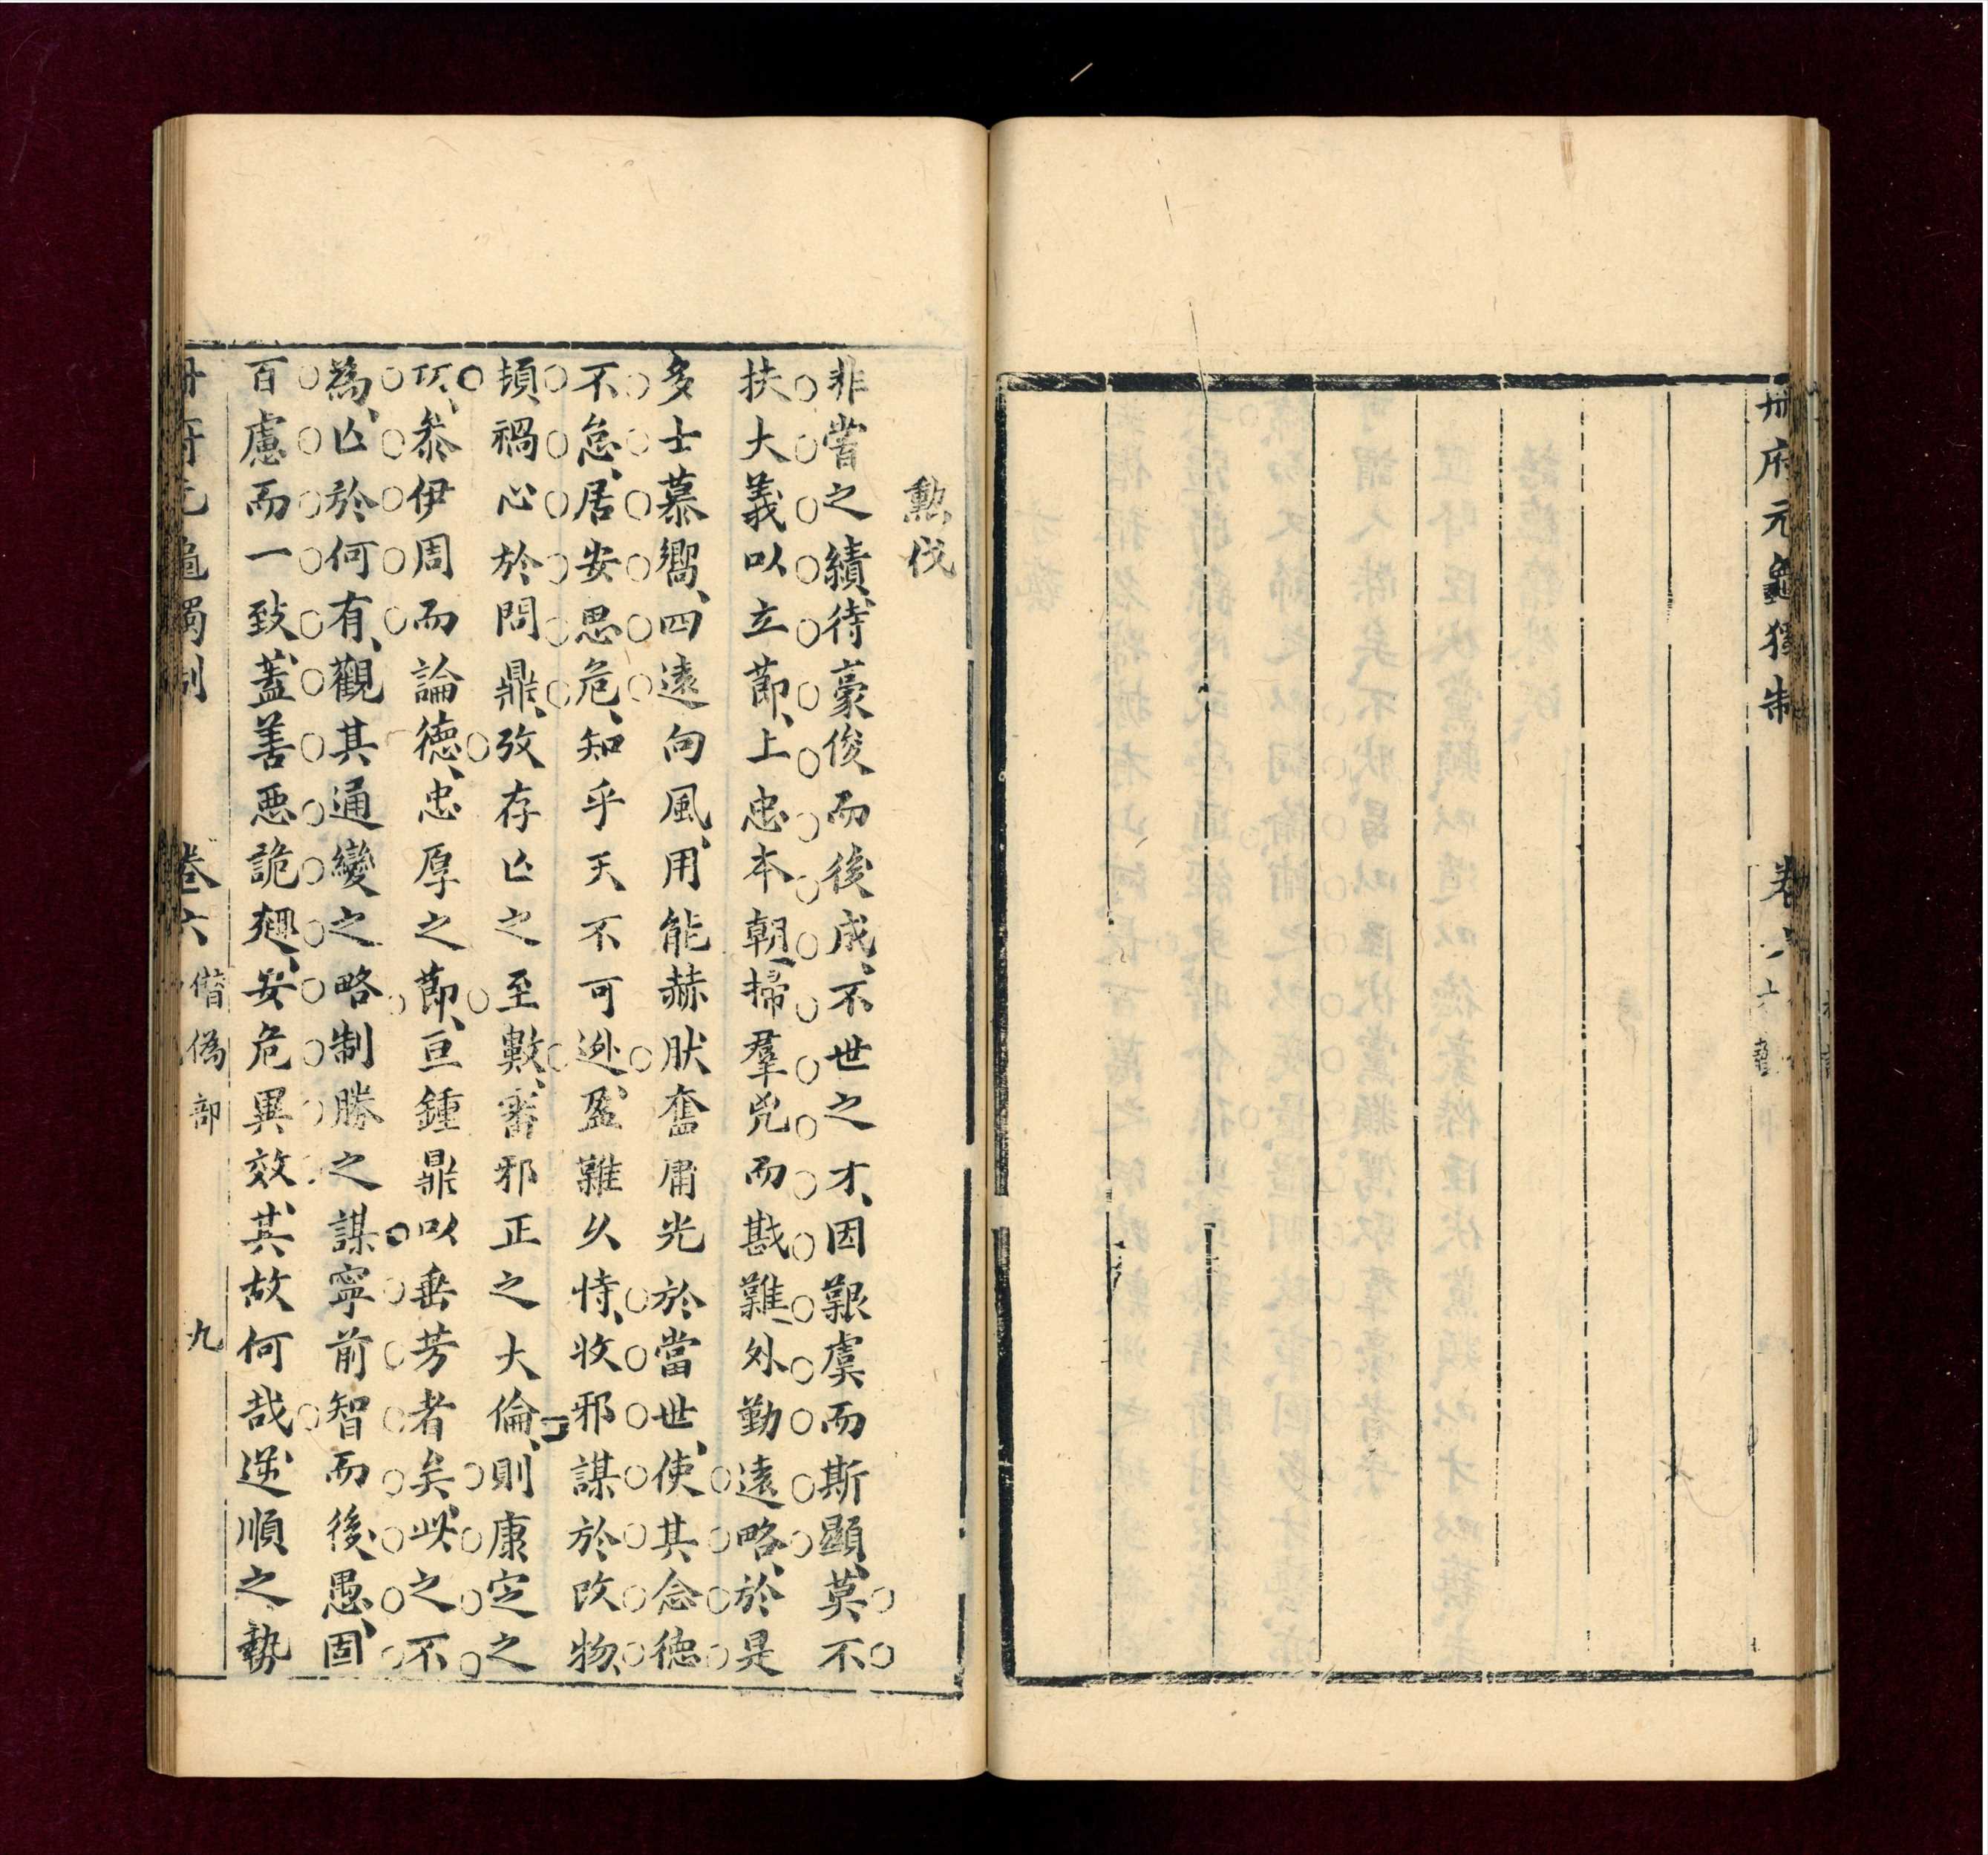 冊府元龜獨制
卷
勲伐
非嘗之績、待豪俊而後成、不世之才、因艱虞而斯顯、莫不
扶大義以立節、上忠本朝、掃羣兇而戡難、外勤遠略、於是
多士慕嚮、四遠向風、用能赫肰奮庸光於當世、使其念德
不怠、居安思危、知乎天不可逃、盈難乆恃、收邪謀於改物、
頓禍心於問鼎、攷存亾之至數、審邪正之大倫、則康定之
㓛、叅伊周而論德、忠厚之節、亘鍾鼎以垂芳者矣、此之不
為、亾於何有、觀其通變之略制勝之謀寧前智而後愚、固
百慮而一致、蓋善惡詭𢌞、安危異效、其故何哉逆順之勢
冊府元龜獨制
卷六
僭偽部
九